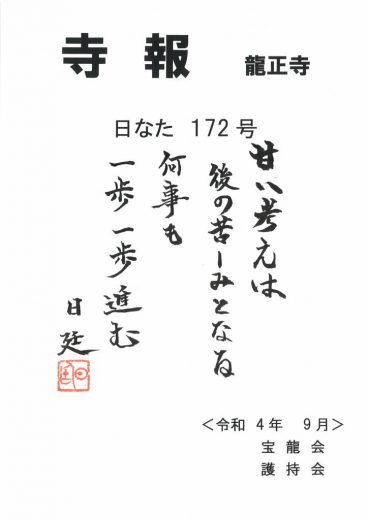 寺報 龍正寺
日なた 172号
甘い考えは
後の苦しみとなる
何事も
一歩一歩進む
日延
<令和 4年 9月>
宝龍会
護持会